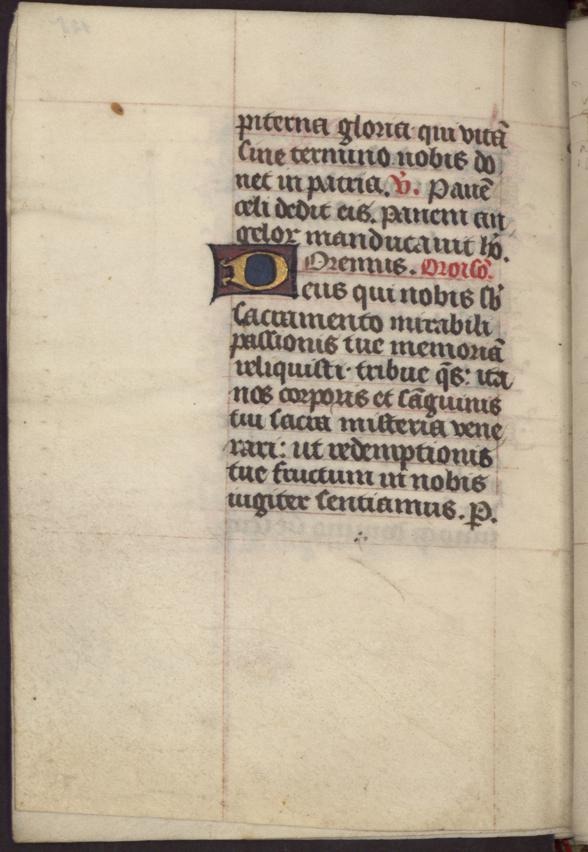 piterna gloria qui vitā
sine termino nobis do
net in patria. V̄. Panē
celi dedit eis. Panem an
gelor manducavit hō.
Oremus. Oroiso.
Deus qui nobis sb̄
sacramento mirabili
passionis tue memoriā
reliquisti· tribue q̄s: ita
nos corporis et sāguinis
tui sacra misteria vene
rari: ut redemptionis
tue fructum in nobis
iugiter sentiamus. P.